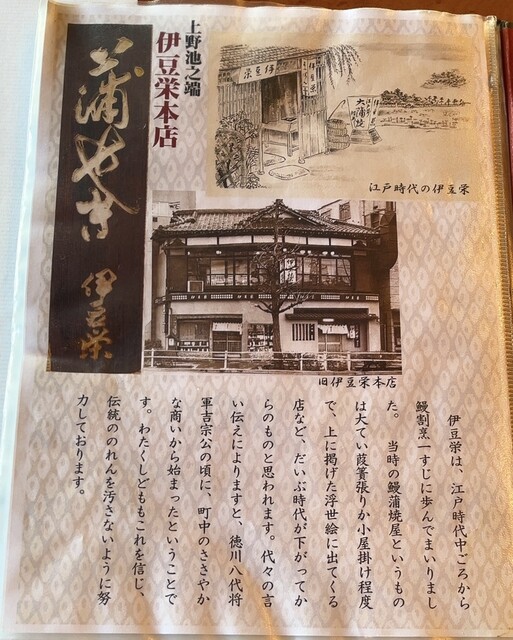 上野池之端
伊豆栄本店
蒲やき
伊豆栄
伊豆栄
大蒲焼
江戸時代の伊豆栄
旧伊豆栄本店
伊豆栄は、江戸時代中ごろから
鰻割烹一すじに歩んでまいりまし
た。当時の鰻蒲焼屋というもの
は大てい葭簀張りか小屋掛け程度
で、上に掲げた浮世絵に出てくる
店など、だいぶ時代が下がってか
らのものと思われます。代々の言
い伝えによりますと、徳川八代将
軍吉宗公の頃に、町中のささやか
な商いから始まったということで
す。わたくしどももこれを信じ、
伝統ののれんを汚さないように努
力しております。